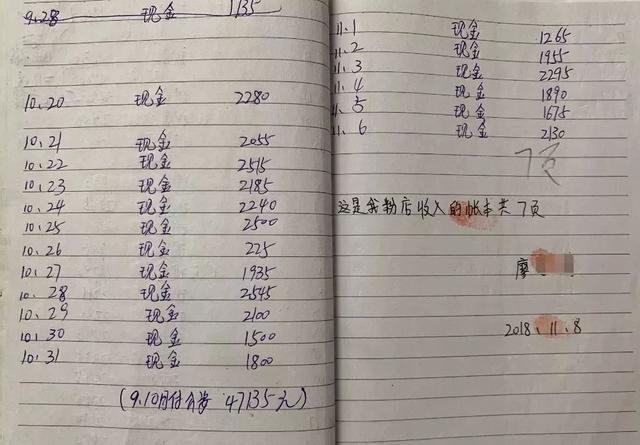 9.28 现金 1135
10.20 现金 2280
10.21 现金 2055
10.22 现金 2515
10.23 现金 2185
10.24 现金 2240
10.25 现金 2500
10.26 现金 225
10.27 现金 1935
10.28 现金 2545
10.29 现金 2100
10.30 现金 1500
10.31 现金 1800
(9.10月付 47135元)
11.1 现金 1265
11.2 现金 1955
11.3 现金 2295
11.4 现金 1890
11.5 现金 1675
11.6 现金 2130
7页
这是我粉店收入的帐本共7页
廖
2018.11.8